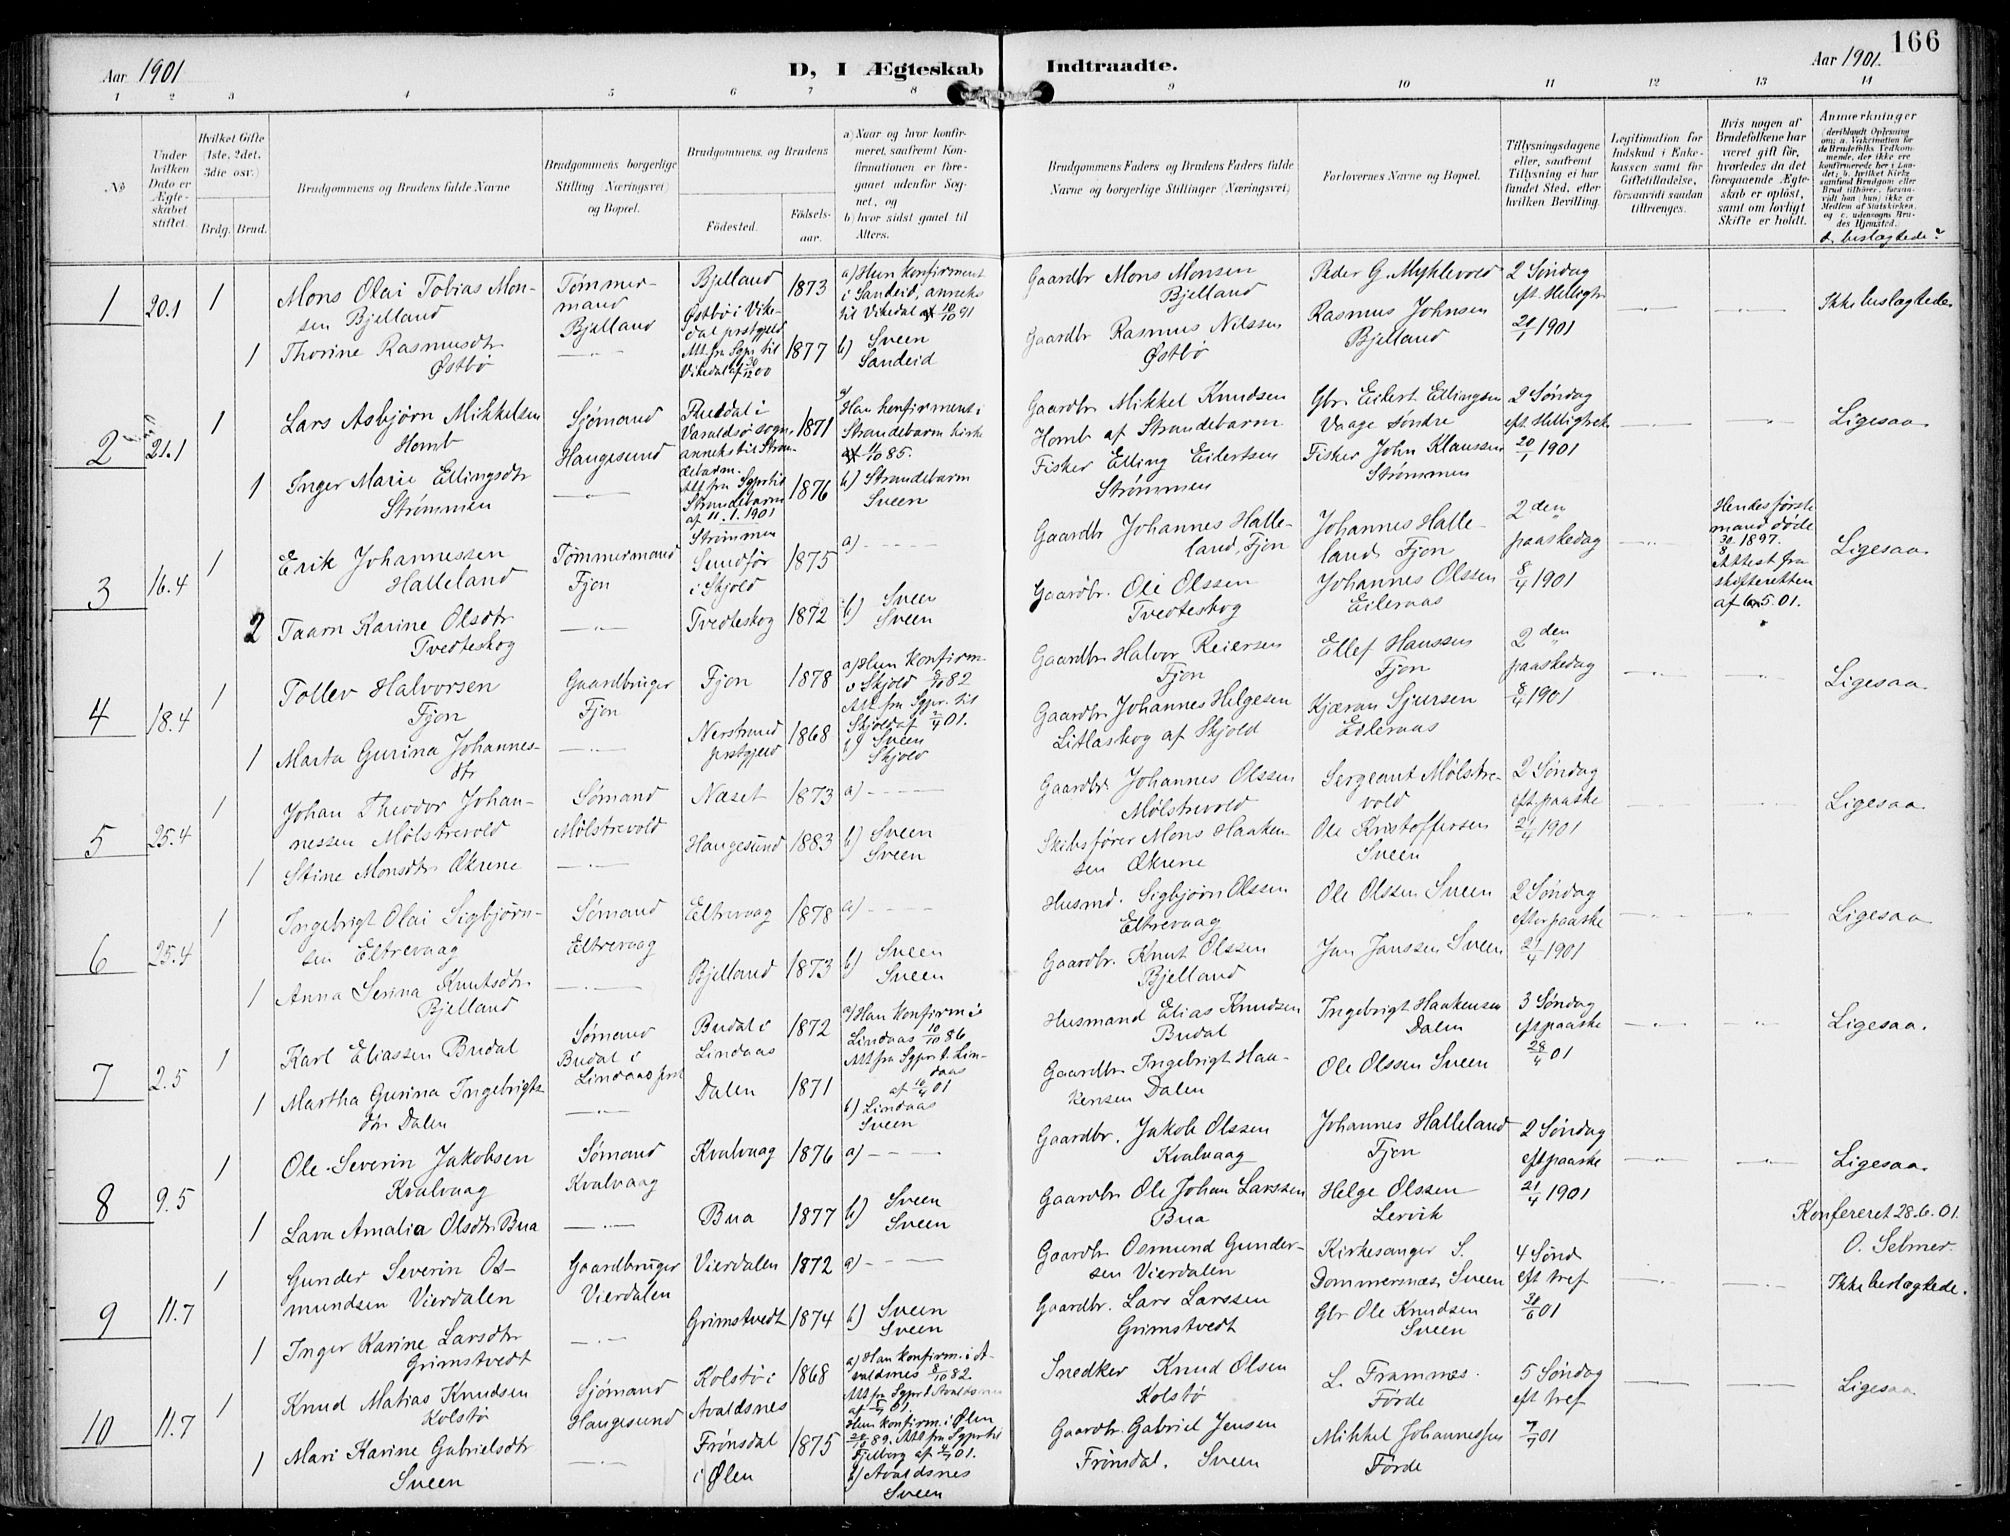 166
Aar 1901
D, I Ægteskab Indtraadte.
Aar 1901.
1 2 3 4 5 6 7 8 9 10 11 12 13 14
No
Under hvilken Dato er Ægteskabet stiftet.
Hvilket Gifte (1ste, 2det, 3die osv.)
Brdg. Brud.
Brudgommens og Brudens fulde Navne
Brudgommens borgerlige Stilling (Næringsvei) og Bopæl.
Brudgommens, og Brudens
Fødested.
Fødselsaar.
a) Naar og hvor konfirmeret, saafremt Konfirmationen er foregaaet udenfor Sognet, og
b) hvor sidst gaaet til Alters.
Brudgommens Faders og Brudens Faders fulde Navne og borgerlige Stillinger (Næringsvei)
Forlovernes Navne og Bopæl.
Tillysningsdagene eller, saafremt Tillysning ei har fundet Sted, efter hvilken Bevilling.
Legitimation for Indskud i Enkekassen samt for Giftetilladelse, forsaavidt saadan tiltrænges.
Hvis nogen af Brudefolkene har været gift før, hvorledes da det foregaaende Ægteskab er opløst, samt om lovligt Skifte er holdt.
Anmærkninger
d. beslægtede?
1 20.1 1
Mons Olai Tobias Mon-
sen Bjelland
Tømmer-
mand
Bjelland
Bjelland 1873
a) Hun konfirmeret
i Sandeid, anneks
til Vikedal 10/10 91
Gaardbr Mons Monsen
Bjelland
Peder G. Myklevold
2 Søndag
eft. Helligtr
20/1 1901
Ikke beslægtede
1 Thorine Rasmusdtr
Østbø
Østbø i Vike-
dal prstgjeld
Att. fra Sgpr. til
Vikedal af 30/12 00
1877
b) Sveen
Sandeid
Gaardbr Rasmus Nilssen
Østbø
Rasmus Johnsen
Bjelland
2 21.1 1
Lars Asbjørn Mikkelsen
Homb
Sjømand
Haugesund
Varaldsø sogn,
anneks til Stran-
debarm.
1871
a)
Han konfirmeret i
Strandebarm kirke
4/10 85.
Gaardbr Mikkel Knudsen
Homb af Strandebarm
Gbr. Eilert Ellingsen
Vaage Søndre
2 Søndag
eft. Helligtrek
20/1 1901
Ligesaa
1 Inger Marie Ellingsdtr
Strømmen
Att fra Sgpr til
Strandebarm
af 11.1.1901
Strømmen
1876
b) Strandebarm
Sveen
Fisker Elling Eilertsen
Strømmen
Fisker John Klaussen
Strømmen
3 16.4 1
Erik Johannessen
Halleland
Tømmermand
Fjon
Sundfør
i Skjold
1875
a)
Gaardbr Johannes Halle-
land, Fjon
Johannes Halle-
land, Fjon
2den
paaskedag
8/4 1901
Hendes første
mand døde
30/8 1897.
Attest fra
skifteretten
af 6.5.01.
Ligesaa
2 Taarn Karine Olsdtr
Tvedteskog
Tvedteskog 1872
b) Sveen
Sveen
Gaardbr. Ole Olssen
Tvedteskog
Johannes Olssen
Eileraas
4 18.4 1
Tollev Halvorsen
Fjon
Gaardbruger
Fjon
Fjon 1878
a) Hun konfirm
i Skjold 8/10 82
Att fra Sgpr. til
Skjold af 2/4 01.
Gaardbr. Halvor Reiersen
Fjon
Ellef Hanssen
Fjon
2den
paaskedag
8/4 1901
Ligesaa
1 Marta Gurina Johannes-
dtr
Nerstrand
prstgjeld
1868
b) Sveen
Skjold
Gaardbr. Johannes Helgesen
Litlaskog af Skjold
Kjæran Sjursen
Eileraas
5 25.4 1
Johan Theodor Johan-
nessen Mølstrevold
Sømand
Mølstrevold
Næset 1873
a)
Gaardbr. Johannes Olssen
Mølstrevold
Sergeant Mølstre-
vold
2 Søndag
eft. paaske
21/4 1901
Ligesaa
1 Stine Monsdtr Økrene
Haugesund 1883
b) Sveen
Sveen
Skibsfører Mons Haaken-
sen Økrene
Ole Kristoffersen
Sveen
6 25.4 1
Ingebrigt Olai Sigbjørn-
sen Eltrevaag
Sømand
Eltrevaag
Eltrevaag 1878
a)
Husmd. Sigbjørn Olssen
Eltrevaag
Ole Olssen Sveen
2 Søndag
efter paaske
21/4 1901
Ligesaa
1 Anna Serina Knutsdtr
Bjelland
Bjelland 1873
b) Sveen
Sveen
Gaardbr. Knut Olssen
Bjelland
Jan Janssen Sveen
7 2.5 1
Karl Eliassen Budal
Sømand
Budal i
Lindaas prst
Budal i
Lindaas
1872
a) Han konfirm i
Lindaas 10/10 86
Att fra Sgpr t. Lin-
daas
af 16/4 01
Husmand Elias Knudsen
Budal
Ingebrigt Haakensen
Dalen
3 Søndag
eft paaske
28/4 01
Ligesaa.
1 Martha Gurina Ingebrigts-
dtr Dalen
Dalen 1871
b) Lindaas
Sveen
Gaardbr. Ingebrigt Haa-
kensen Dalen
Ole Olssen Sveen
8 9.5 1
Ole Severin Jakobsen
Kvalvaag
Sømand
Kvalvaag
Kvalvaag 1876
a)
Gaardbr. Jakob Olssen
Kvalvaag
Johannes Halleland
Fjon
2 Søndag
eft paaske
21/4 1901
Ligesaa
1 Lava Amalia Olsdtr Bua
Bua 1877
b) Sveen
Sveen
Gaardbr Ole Johan Larssen
Bua
Helge Olssen
Lervik
Konfereret 28.6.01.
O. Selmer.
9 11.7 1
Gunder Severin Os-
mundsen Vierdalen
Gaardbruger
Vierdalen
Vierdalen 1872
a)
Gaardbr Osmund Gunder-
sen Vierdalen
Kirkesanger S.
Dommersnæs, Sveen
4 Sønd
eft tref
30/6 01
Ikke beslægtede.
1 Inger Karine Larsdtr
Grimstvedt
Grimstvedt 1874
b) Sveen
Sveen
Gaardbr. Lars Larssen
Grimstvedt
Gbr Ole Knudsen
Sveen
10 11.7 1
Knud Matias Knudsen
Kolstø
Sjømand
Haugesund
Kolstø i
Avaldsnes
1868
a) Han konfirm. i A-
valdsnes 8/10 82
Att fra Sgpr t Avaldsnes
Snedker Knud Olsen
Kolstø
L. Framnæs.
Førde
5 Søndag
eft tref
7/7 01
Ligesaa
1 Mari Karine Gabrielsdtr
Sveen
Frønsdal
i Ølen
1875
Hun konfirm. i Ølen
89. Att fra Sgpr til
Fjelberg af 4/7 01.
b) Avaldsnes
Sveen
Gaardbr. Gabriel Jensen
Frønsdal. Sveen
Mikkel Johannessen
Førde